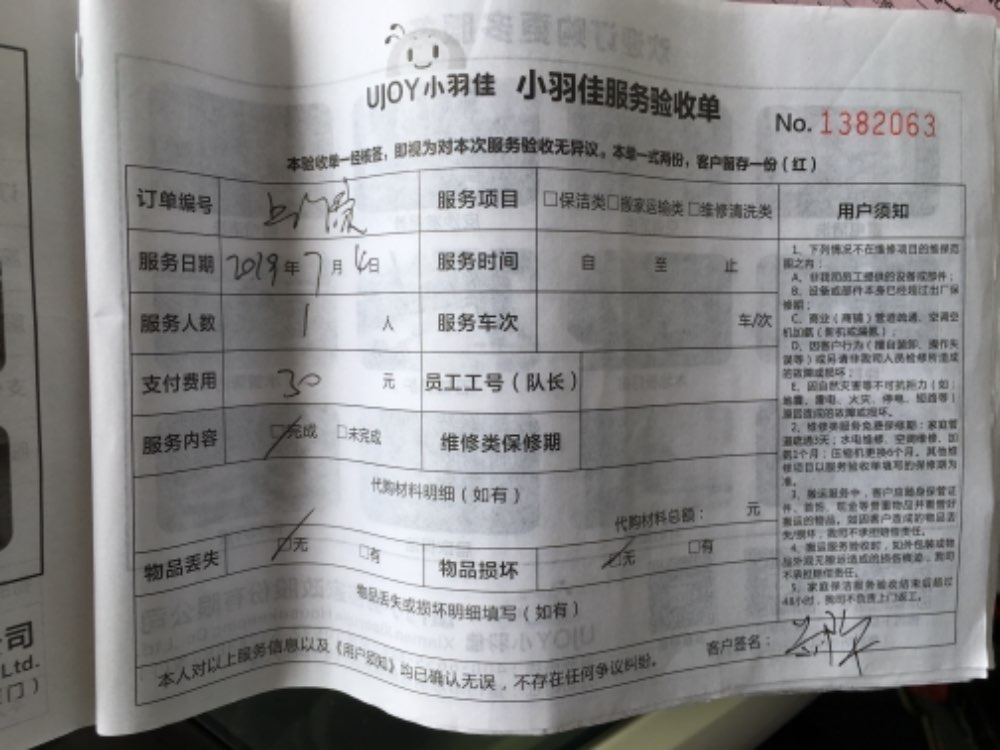 UJOY小羽佳 小羽佳服务验收单
No. 1382063
本验收单一经核签，即视为对本次服务验收无异议。本单一式两份，客户留存一份（红）
订单编号 上门费 服务项目 □保洁类□搬家运输类□维修清洗类 用户须知
服务日期 2019年7月4日 服务时间 自 至 止
服务人数 1 人 服务车次 车/次
支付费用 30 元 员工工号（队长）
服务内容 □完成 □未完成 维修类保修期
代购材料明细（如有）
代购材料总额： 元
物品丢失 □无 □有 物品损坏 □无 □有
物品丢失或损坏明细填写（如有）
客户签名：
本人对以上服务信息以及《用户须知》均已确认无误，不存在任何争议纠纷。
1、下列情况不在维修项目的维保范
围之内：
A、非我司员工提供的设备或部件；
B、设备或部件本身已经超过出厂保
修期；
C、商业（商铺）管道疏通、空调空
机加氨（新机或漏氟）；
D、因客户行为（擅自装卸、操作失
误等）或另请非我司人员检修所造成
的故障或损坏；
E、因自然灾害等不可抗拒力（如：
地震、雷电、火灾、停电、短路等）
原因造成的故障或损坏。
2、维修类服务免费保修期：家庭管
道疏通3天；水电维修、空调维修、加
氨1个月；压缩机更换6个月。其他维
修项目以服务验收单填写的保修期为
准。
3、搬运服务中，客户应随身保管证
件、首饰、现金等贵重物品并看管好
搬运的物品。如因客户造成的物品丢
失/损坏，我司不承担赔偿责任。
4、搬运服务验收时，如外包装或物
品外观无搬运造成的损伤痕迹，我司
不承担赔偿责任。
5、家庭保洁服务验收结束后超过
48小时，我司不负责上门返工。
公司
Ltd.
门）